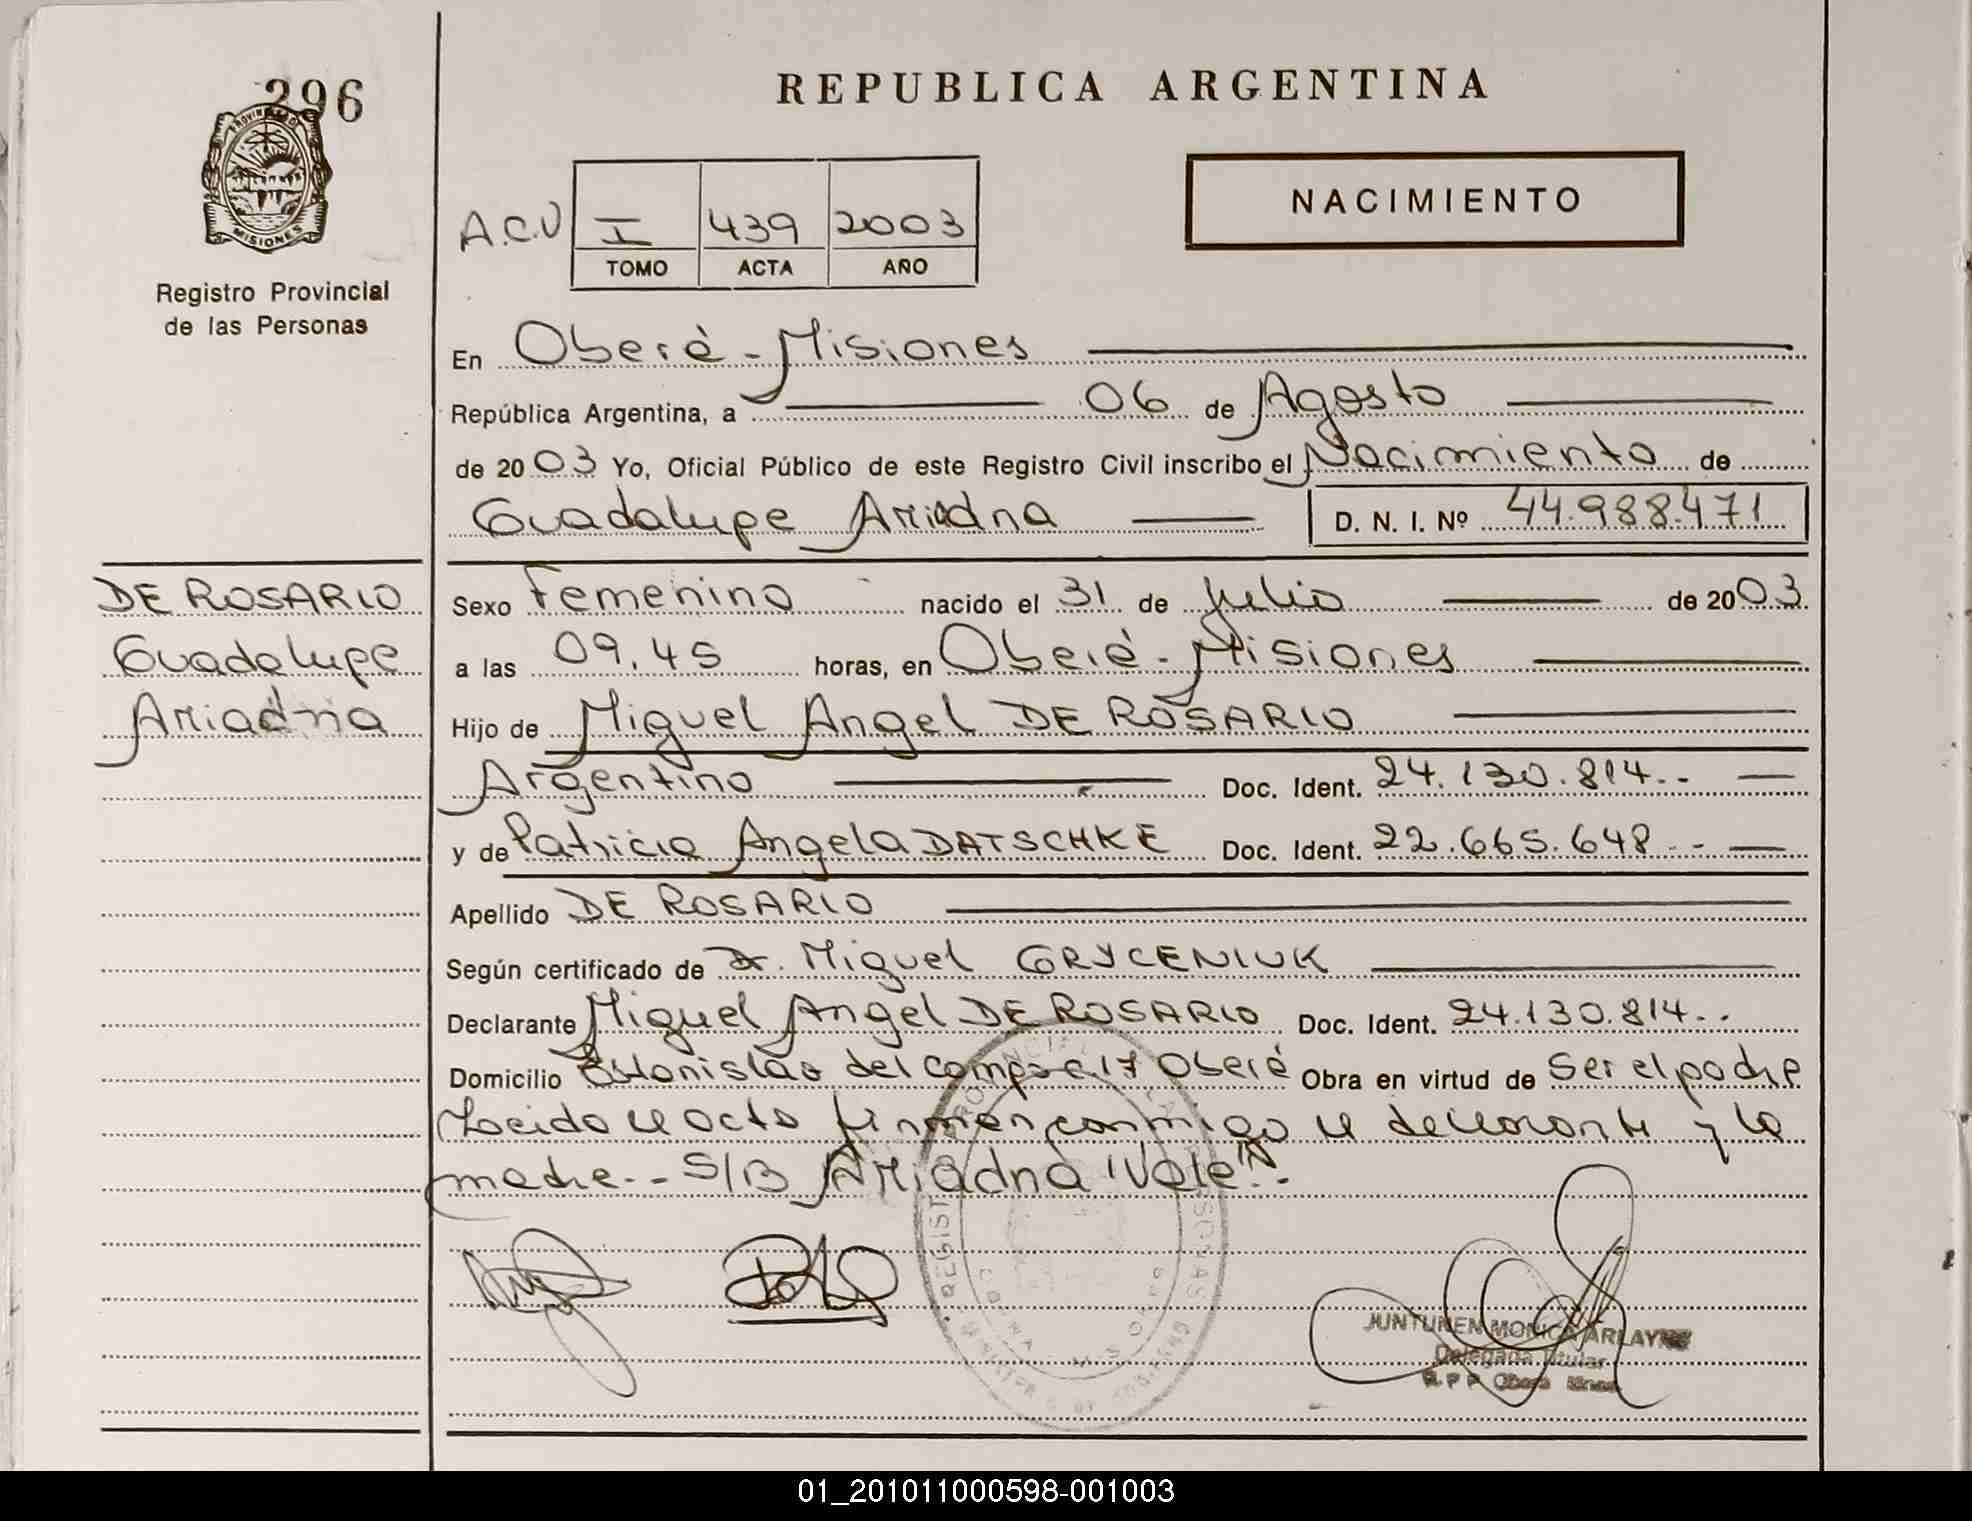 296
REPUBLICA ARGENTINA
PROVINCIA D
MISIONES
Registro Provincial
de las Personas
NACIMIENTO
A.C.U I 439 2003
TOMO ACTA AÑO
En Oberá - Misiones
República Argentina, a 06 de Agosto
de 2003 Yo, Oficial Público de este Registro Civil inscribo el Nacimiento de
Guadalupe Ariadna D. N. I. Nº 44.988.471
DE ROSARIO
Guadalupe
Ariadna
Sexo Femenino nacido el 31 de Julio de 2003
a las 09.45 horas, en Oberá - Misiones
Hijo de Miguel Angel DE ROSARIO
Argentino Doc. Ident. 24.130.814.-
y de Patricia Angela DATSCHKE Doc. Ident. 22.665.648.-
Apellido DE ROSARIO
Según certificado de Dr. Miguel GRYCENIUK
Declarante Miguel Angel DE ROSARIO Doc. Ident. 24.130.814.-
Domicilio Estanislao del Campo 17 Oberá Obra en virtud de Ser el padre
Leida el acta firman conmigo el declarante y la
madre.- S/B Ariadna "Vale".-
JUNTUNEN MONICA ARLAYNE
Delegada Titular
R.P.P. Oberá
01_201011000598-001003